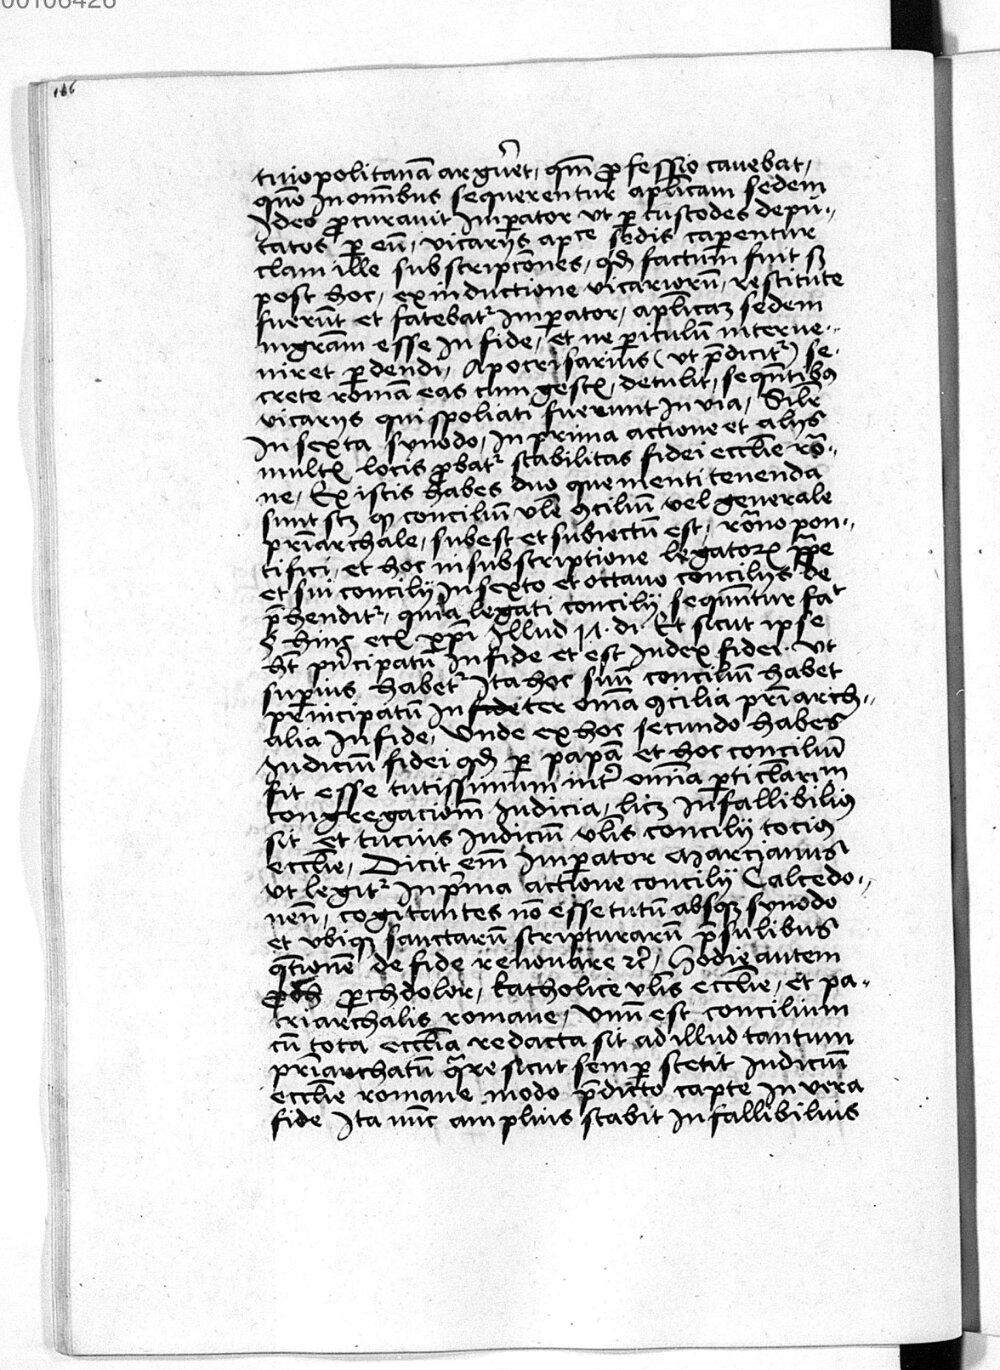 00106426
186
tinopolitanā argūet, qm̄ ꝓfessio cavebat,
quō In om̄ibus sequerentur aplicam sedem
Ideo ꝓcuravit Impator ut p custodes depu-
tatos p eū, vicarijs apce sedis caperentur
clam ille subscripcōnes, qd factum fuit sz
post hoc, ex inductione vicariorū, restitute
fuerūt et fatebatr Impator, aplicaz sedem
nigrām esse In fide, et ne piculū interve-
niret pdendi, Apocrisarius (ut pdicitr) se-
crete romā eas cum gestꝭ, detulit, sequētibꝯ
vicarijs qui spoliati fuerunt In via, Silr
In sexta synodo, In prima actione et alijs
multꝭ locis ꝓbatr stabilitas fidei ecclīe rō-
ne, Ex istis habes duo que menti tenenda
sunt scz qꝫ concilium ulē ꝯcilium vel generale
priārchale, subest et subiectū est, rōno pon-
tifici, et hoc in subscriptione legatorꝝ ppe
et sui concilij In sexto et octavo concilijs de
phenditr, quia legati concilij sequūntur
Illud di Et sicut ipse
ht pncipatū In fide et est Index fidei ut
supius habetr Ita hoc suū concilium habet
preincipatū In fide ter om̄ia ꝯcilia priārch-
alia In fide, Unde ex hoc secundo habes
Iudicium fidei qd p papā et hoc concilium
fit esse tutissimum int om̄ia pticlarium
congregacionum Iudicia, licz Infallibiliꝰ
sit et tucius Iudicium ulis concilij tociꝰ
ecclie, Dicit em̄ Impator Marcianus
ut legitr In pma actione concilij Calcedo-
nen̄, cogitantes nō esse tutū absqz synodo
et ubiqz sanctarū scripturarū psulibus
qtionē de fide renovare rc, Hodie autem
prochdolor, katholice ulis ecclie, et pa-
triarchalis romane, Unū est concilium
cū tota ecclia redacta sit ad illud tantum
priārchatū qre sicut semp stetit Iudicium
ecclie romane modo pdicto capte In vera
fide Ita nūc amplius stabit Infallibilius